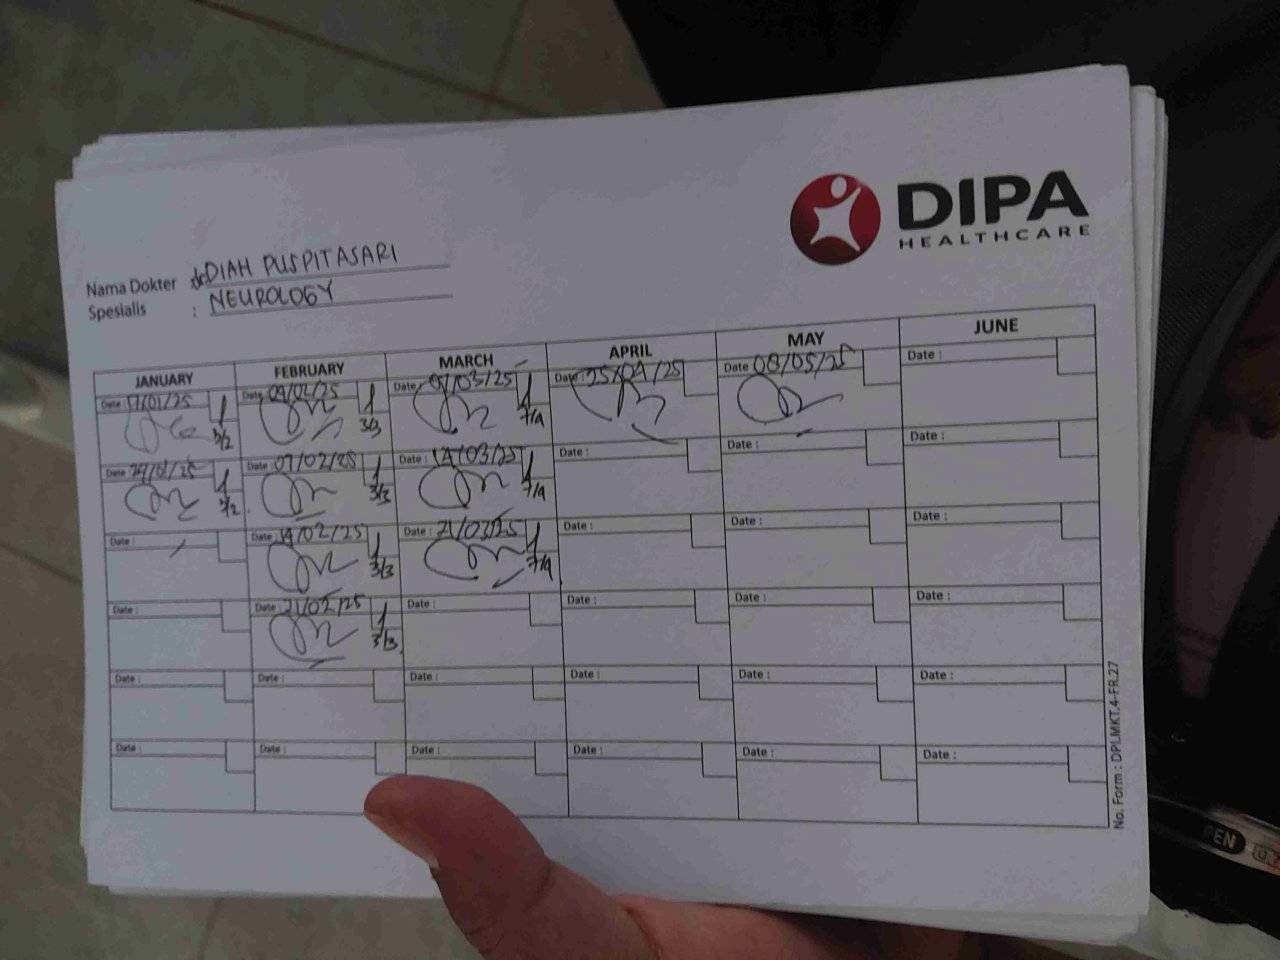 DIPA
HEALTHCARE
Nama Dokter dr DIAH PUSPITASARI
Spesialis : NEUROLOGY
JANUARY FEBRUARY MARCH APRIL MAY JUNE
Date : 17/01/25 Date : 04/02/25 Date : 07/03/25 Date : 25/04/25 Date : 08/05/25 Date :
3/2 3/3 7/4
Date : 24/01/25 Date : 07/02/25 Date : 14/03/25 Date : Date : Date :
3/2 3/3 7/4
Date : Date : 14/02/25 Date : 21/03/25 Date : Date : Date :
3/3 7/4
Date : Date : 21/02/25 Date : Date : Date : Date :
3/3
Date : Date : Date : Date : Date : Date :
Date : Date : Date : Date : Date : Date :
No. Form : DPI.MKT.4-FR.27
PEN